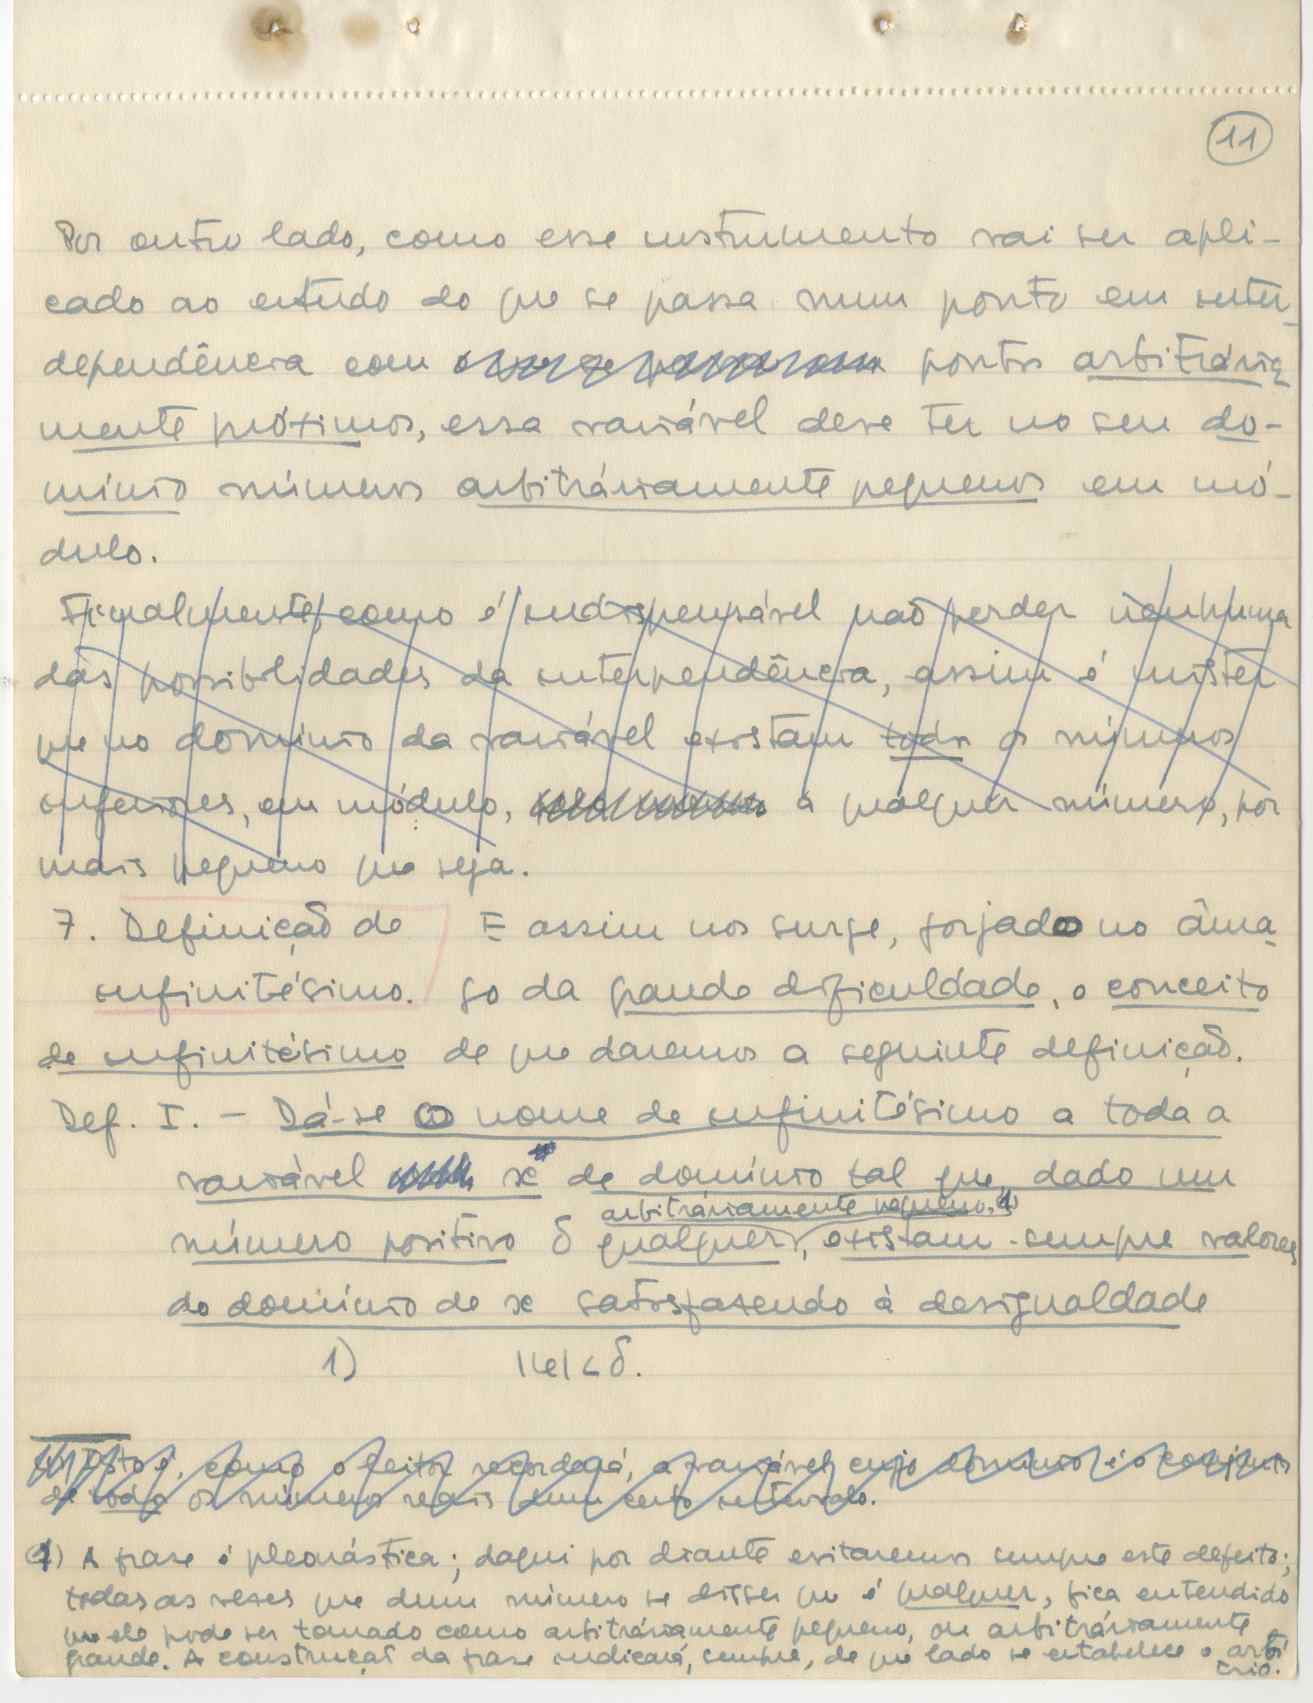 11
Por outro lado, como esse instrumento vai ser apli-
cado ao estudo do que se passa num ponto em inter-
dependência com pontos arbitrária
mente próximos, essa variável deve ter no seu do-
mínio números arbitráriamente pequenos em mó-
dulo.
Finalmente, como é indispensável não perder nenhuma
das possibilidades da interpendência, assim é mister
que no domínio da variável existam todos os números
inferiores, em módulo, a qualquer número, por
mais pequeno que seja.
7. Definição de E assim nos surge, forjado no âma
infinitésimo. go da grande dificuldade, o conceito
de infinitésimo de que daremos a seguinte definição.
Def. I. - Dá-se o nome de infinitésimo a toda a
variável x de domínio tal que, dado um
arbitráriamente pequeno,
número positivo δ qualquer, existam sempre valores
do domínio de x satisfazendo à desigualdade
1) |x| < δ.
Isto é, como o leitor recordará, a variável cujo domínio é o conjunto
de todos os números reais dum certo intervalo.
(1) A frase é pleonástica; daqui por diante evitaremos sempre este defeito;
todas as vezes que dum número se disser que é qualquer, fica entendido
que ele pode ser tomado como arbitráriamente pequeno, ou arbitráriamente
grande. A construção da frase indicará, sempre, de que lado se estabelece o arbí
trio.